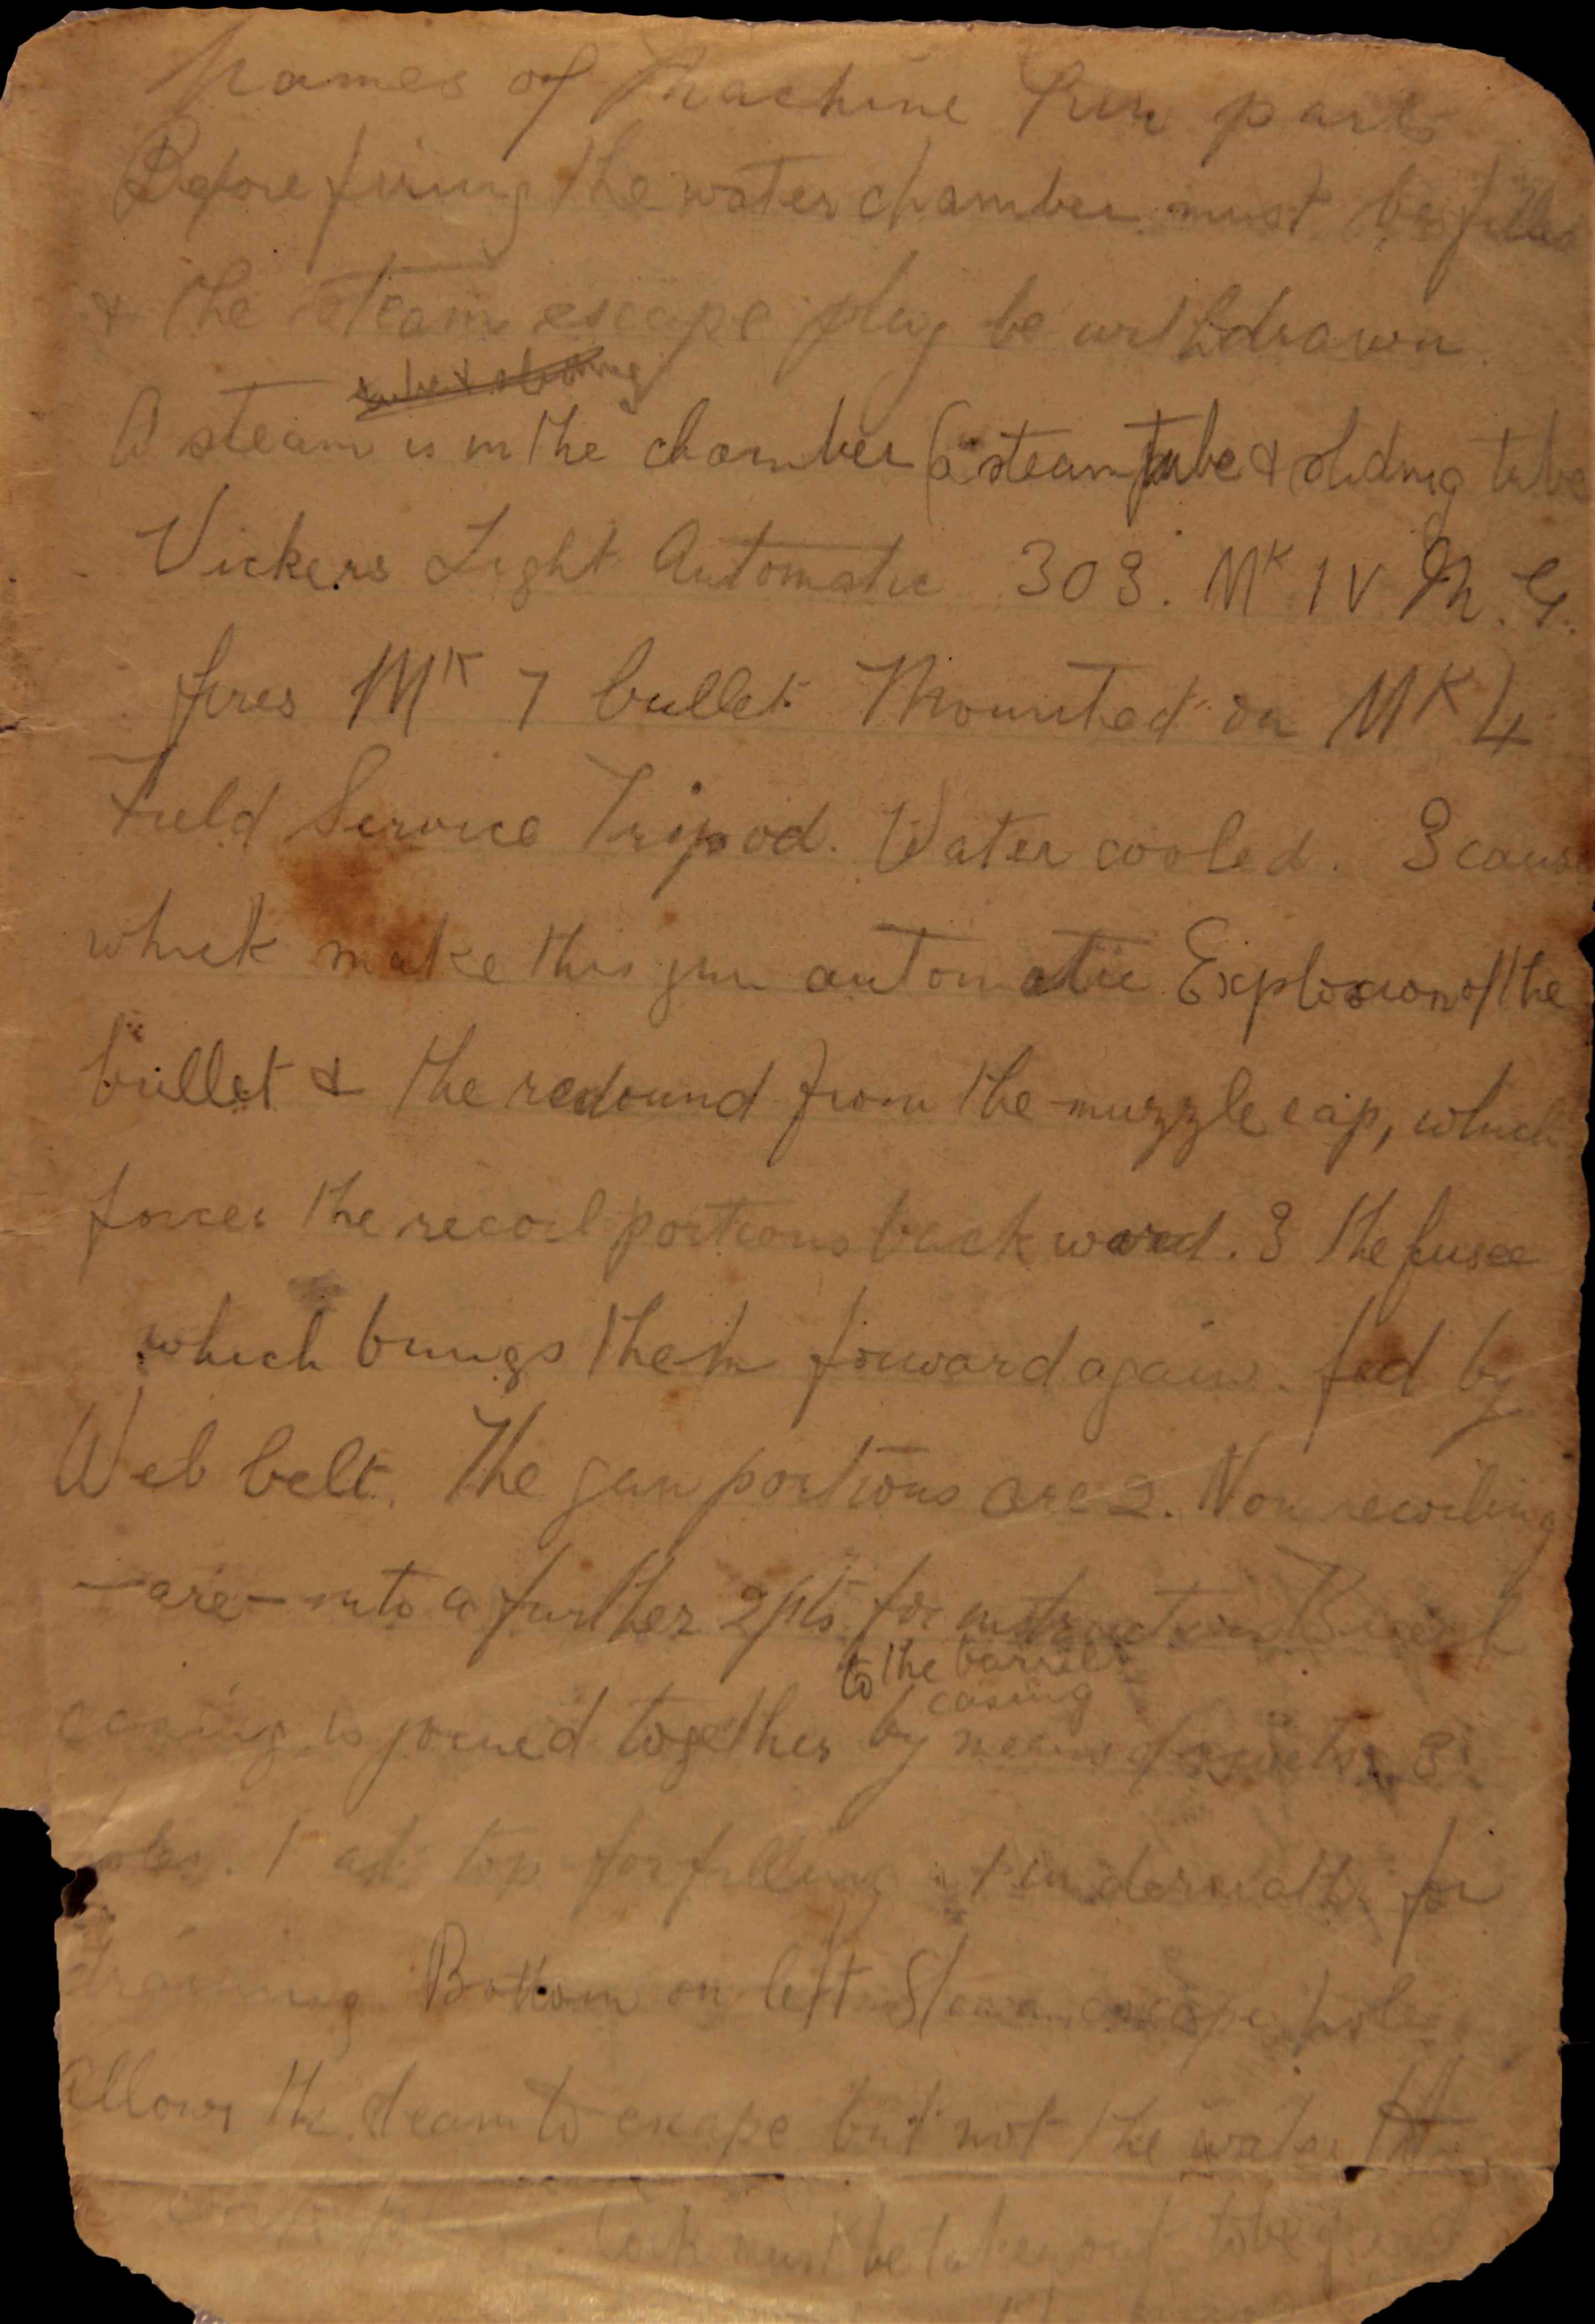 Names of Machine Gun parts
Before firing the water chamber must be filled
& the steam escape plug be withdrawn.
tube & sliding
A steam is in the chamber (a steam tube & sliding tube
Vickers Light Automatic 303. MK IV M.G.
fires MK 7 bullet Mounted on MK 4
Field Service Tripod. Water cooled. 3 caus
which make this gun automatic Explosion of the
bullet & the redound from the muzzle cap, which
forces the recoil portions backward. 3 the fusee
which brings them forward again. fed by
Web belt. The gun portions are 2. Non recoiling
- are - into a further 2 pts for instruction Barrel
to the barrel
casing
casing is joined together by means of rivets. 3
holes. 1 at top for filling 1 underneath for
draining Bottom on left Steam escape hole
allows the steam to escape but not the water
must be taken out to be